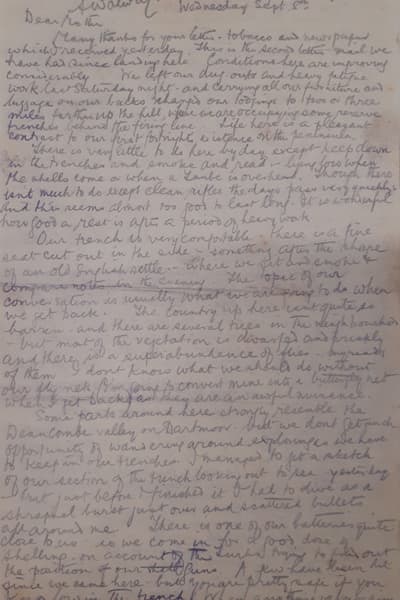 Wednesday Sept 8th
Dear
Many thanks for your letter, tobacco and newspapers
which I received yesterday. This is the second letter mail we
have had since landing here. Conditions here are improving
considerably. We left our dug outs and heavy fatigue
work last Saturday night - and carrying all our furniture and
luggage on our backs changed our lodgings to two or three
miles further up the hill, where we are occupying some reserve
trenches behind the firing line. Life here is a pleasant
contrast to our first fortnight's existence on the peninsular.
There is very little to do here by day except keep down
in the trenches and smoke and read - lying low when
the shells come or when a Taube is overhead. Though there
isn't much to do except clean rifles the days pass very quickly
And this seems almost too good to last long. It is wonderful
how good a rest is after a period of heavy work.
Our trench is very comfortable. There is a fine
seat cut out in the side - something after the shape
of an old English settle - where we sit and smoke &
compare notes in the evening. The topic of our
conversation is usually what we are going to do when
we get back. The country up here isn't quite so
barren - and there are several trees in the neighbourhood
- but most of the vegetation is dwarfed and prickly
and there is a superabundance of flies - myriads
of them. I don't know what we should do without
our fly nets. I'm going to convert mine into a butterfly net
when I get back as they are an awful nuisance.
Some parts around here strongly resemble the
Deancombe valley on Dartmoor. but we don't get much
opportunity of wandering around exploring as we have
to keep in our trenches. I managed to get a sketch
of our section of the trench looking out to sea yesterday
- but just before I finished it I had to dive as a
shrapnel burst just over and scattered bullets
all around me. There is one of our batteries quite
close to us so we come in for a good dose of
shelling - on account of the Turks trying to find out
the position of our guns. A few have been hit
since we came here - but you are pretty safe if you
low in the trench. When